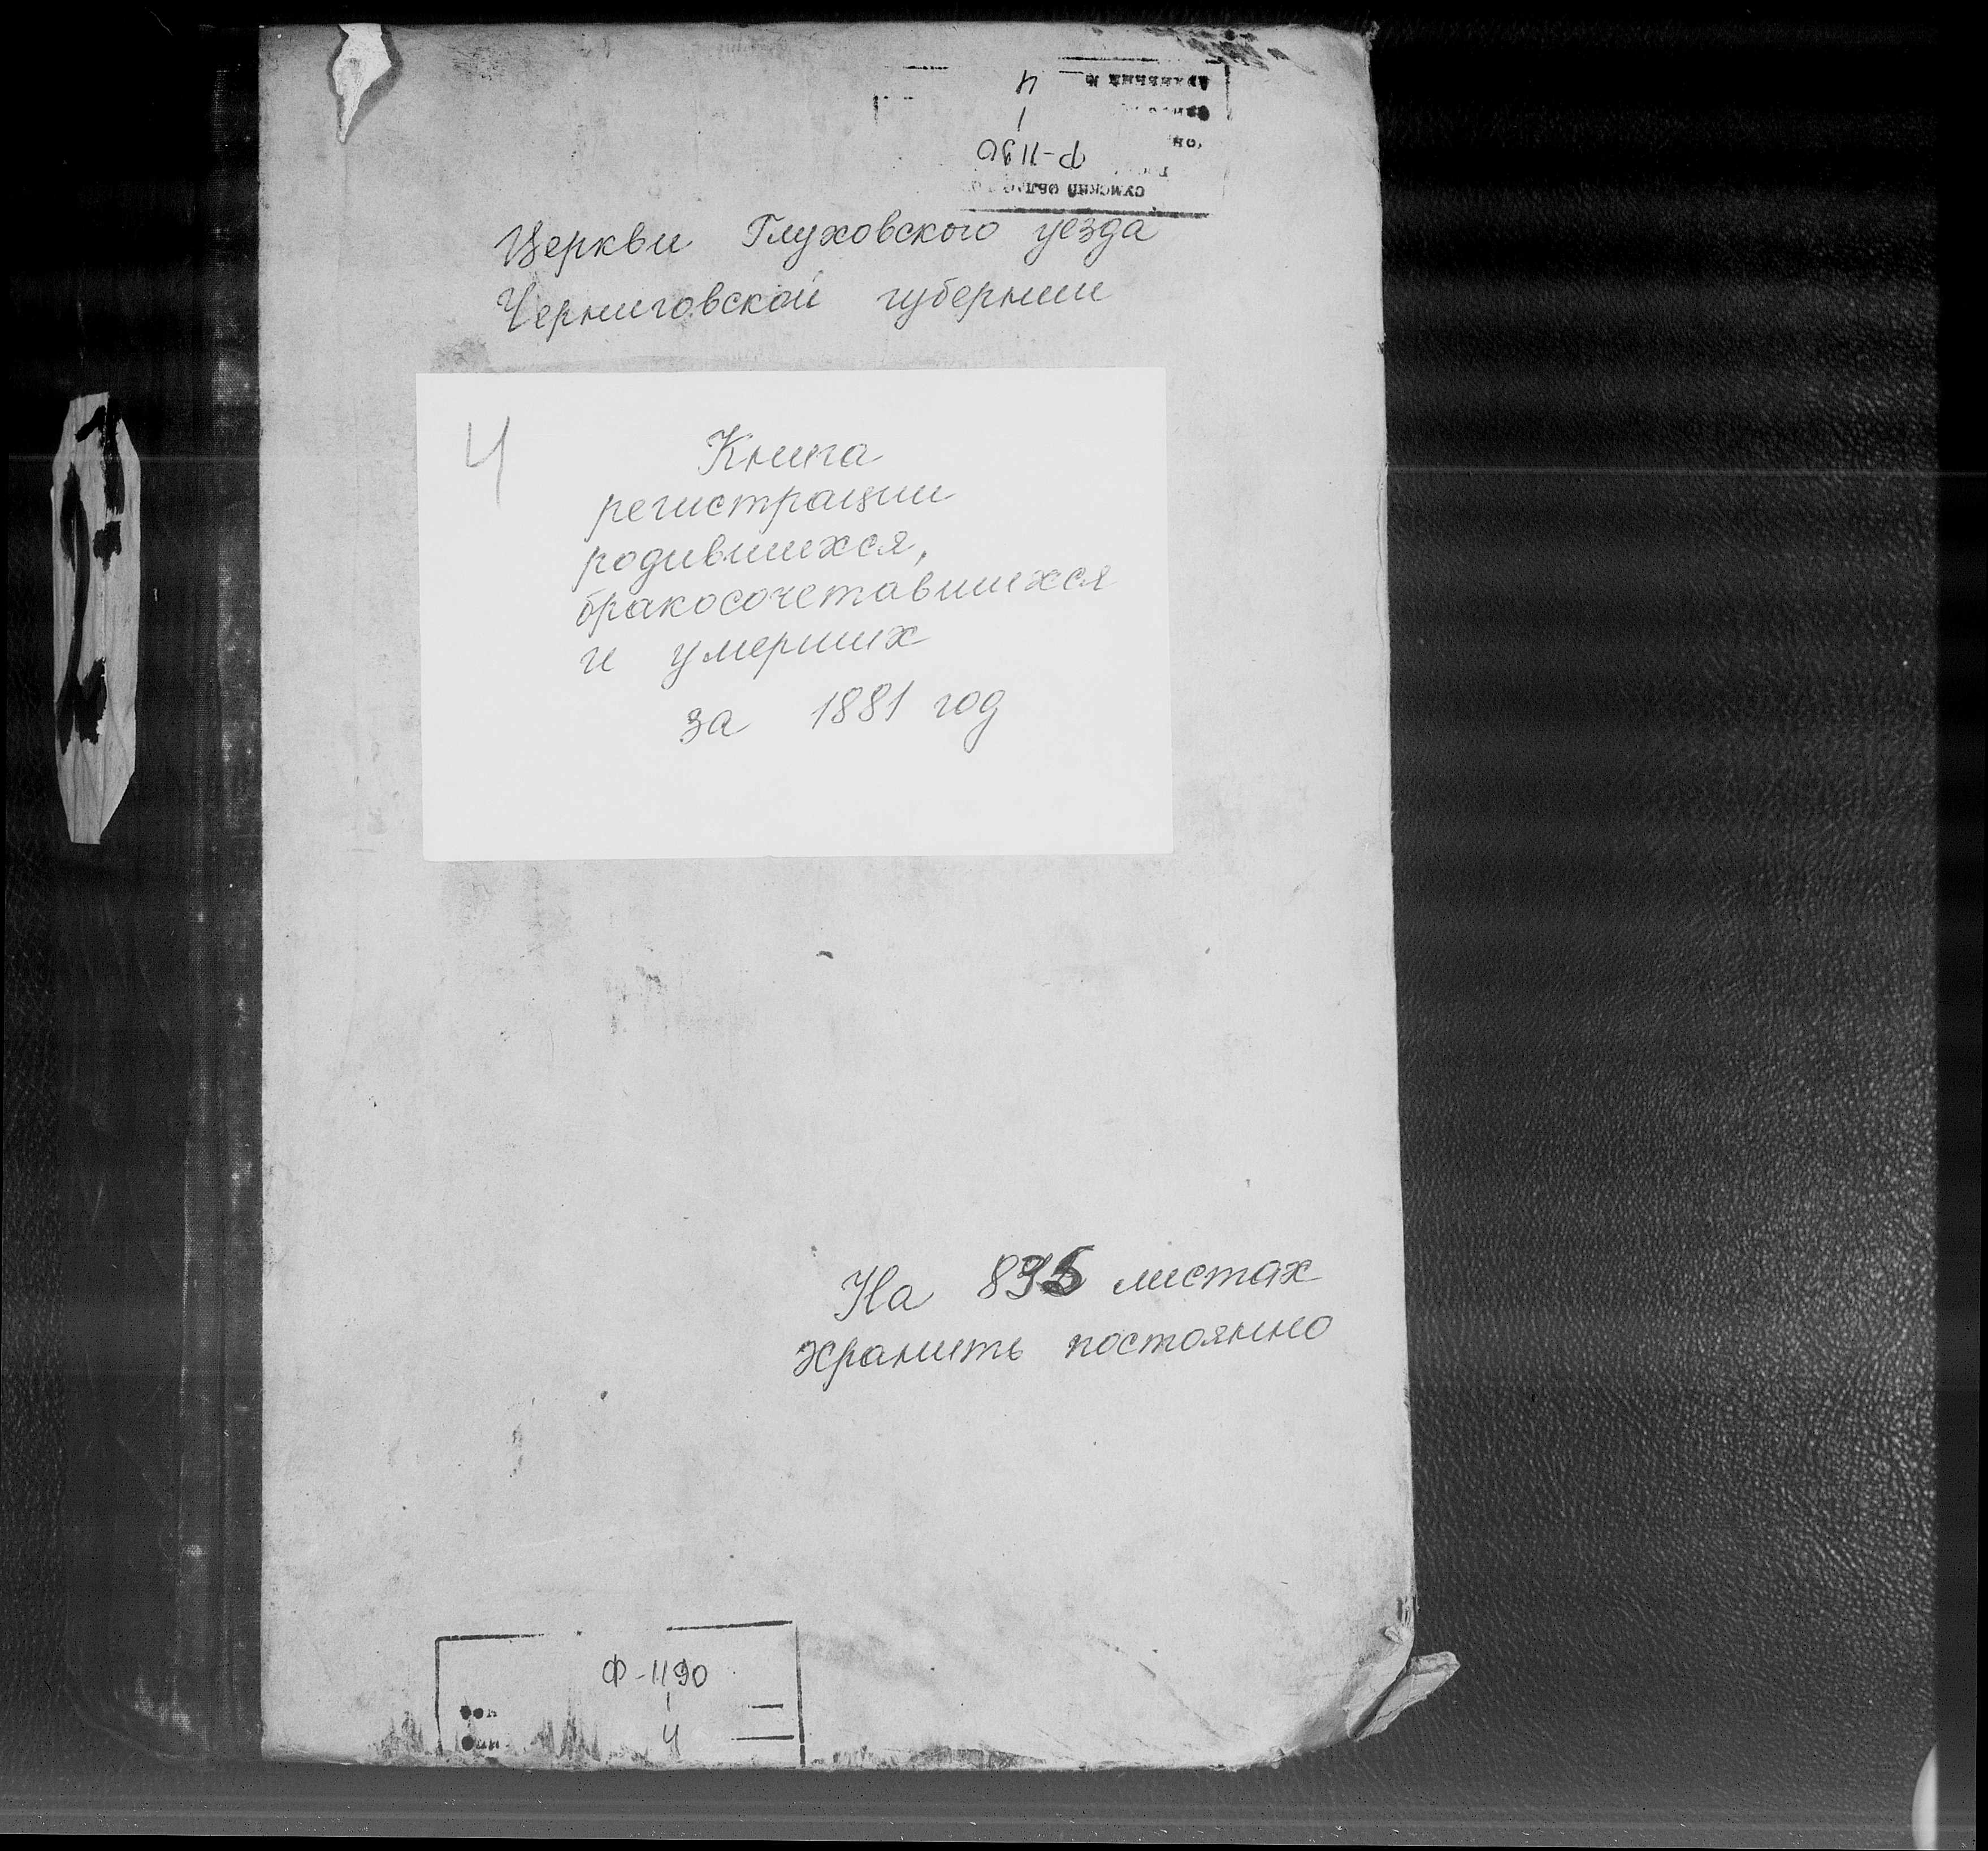 Церкви Глуховского уезда
Черниговской губернии
4
Книга
регистрации
родившихся,
бракосочетавшихся
и умерших
за 1881 год
На 895 листах
хранить постоянно
Ф-1190
1
4
СУМСКИЙ
Р-1190
1
4